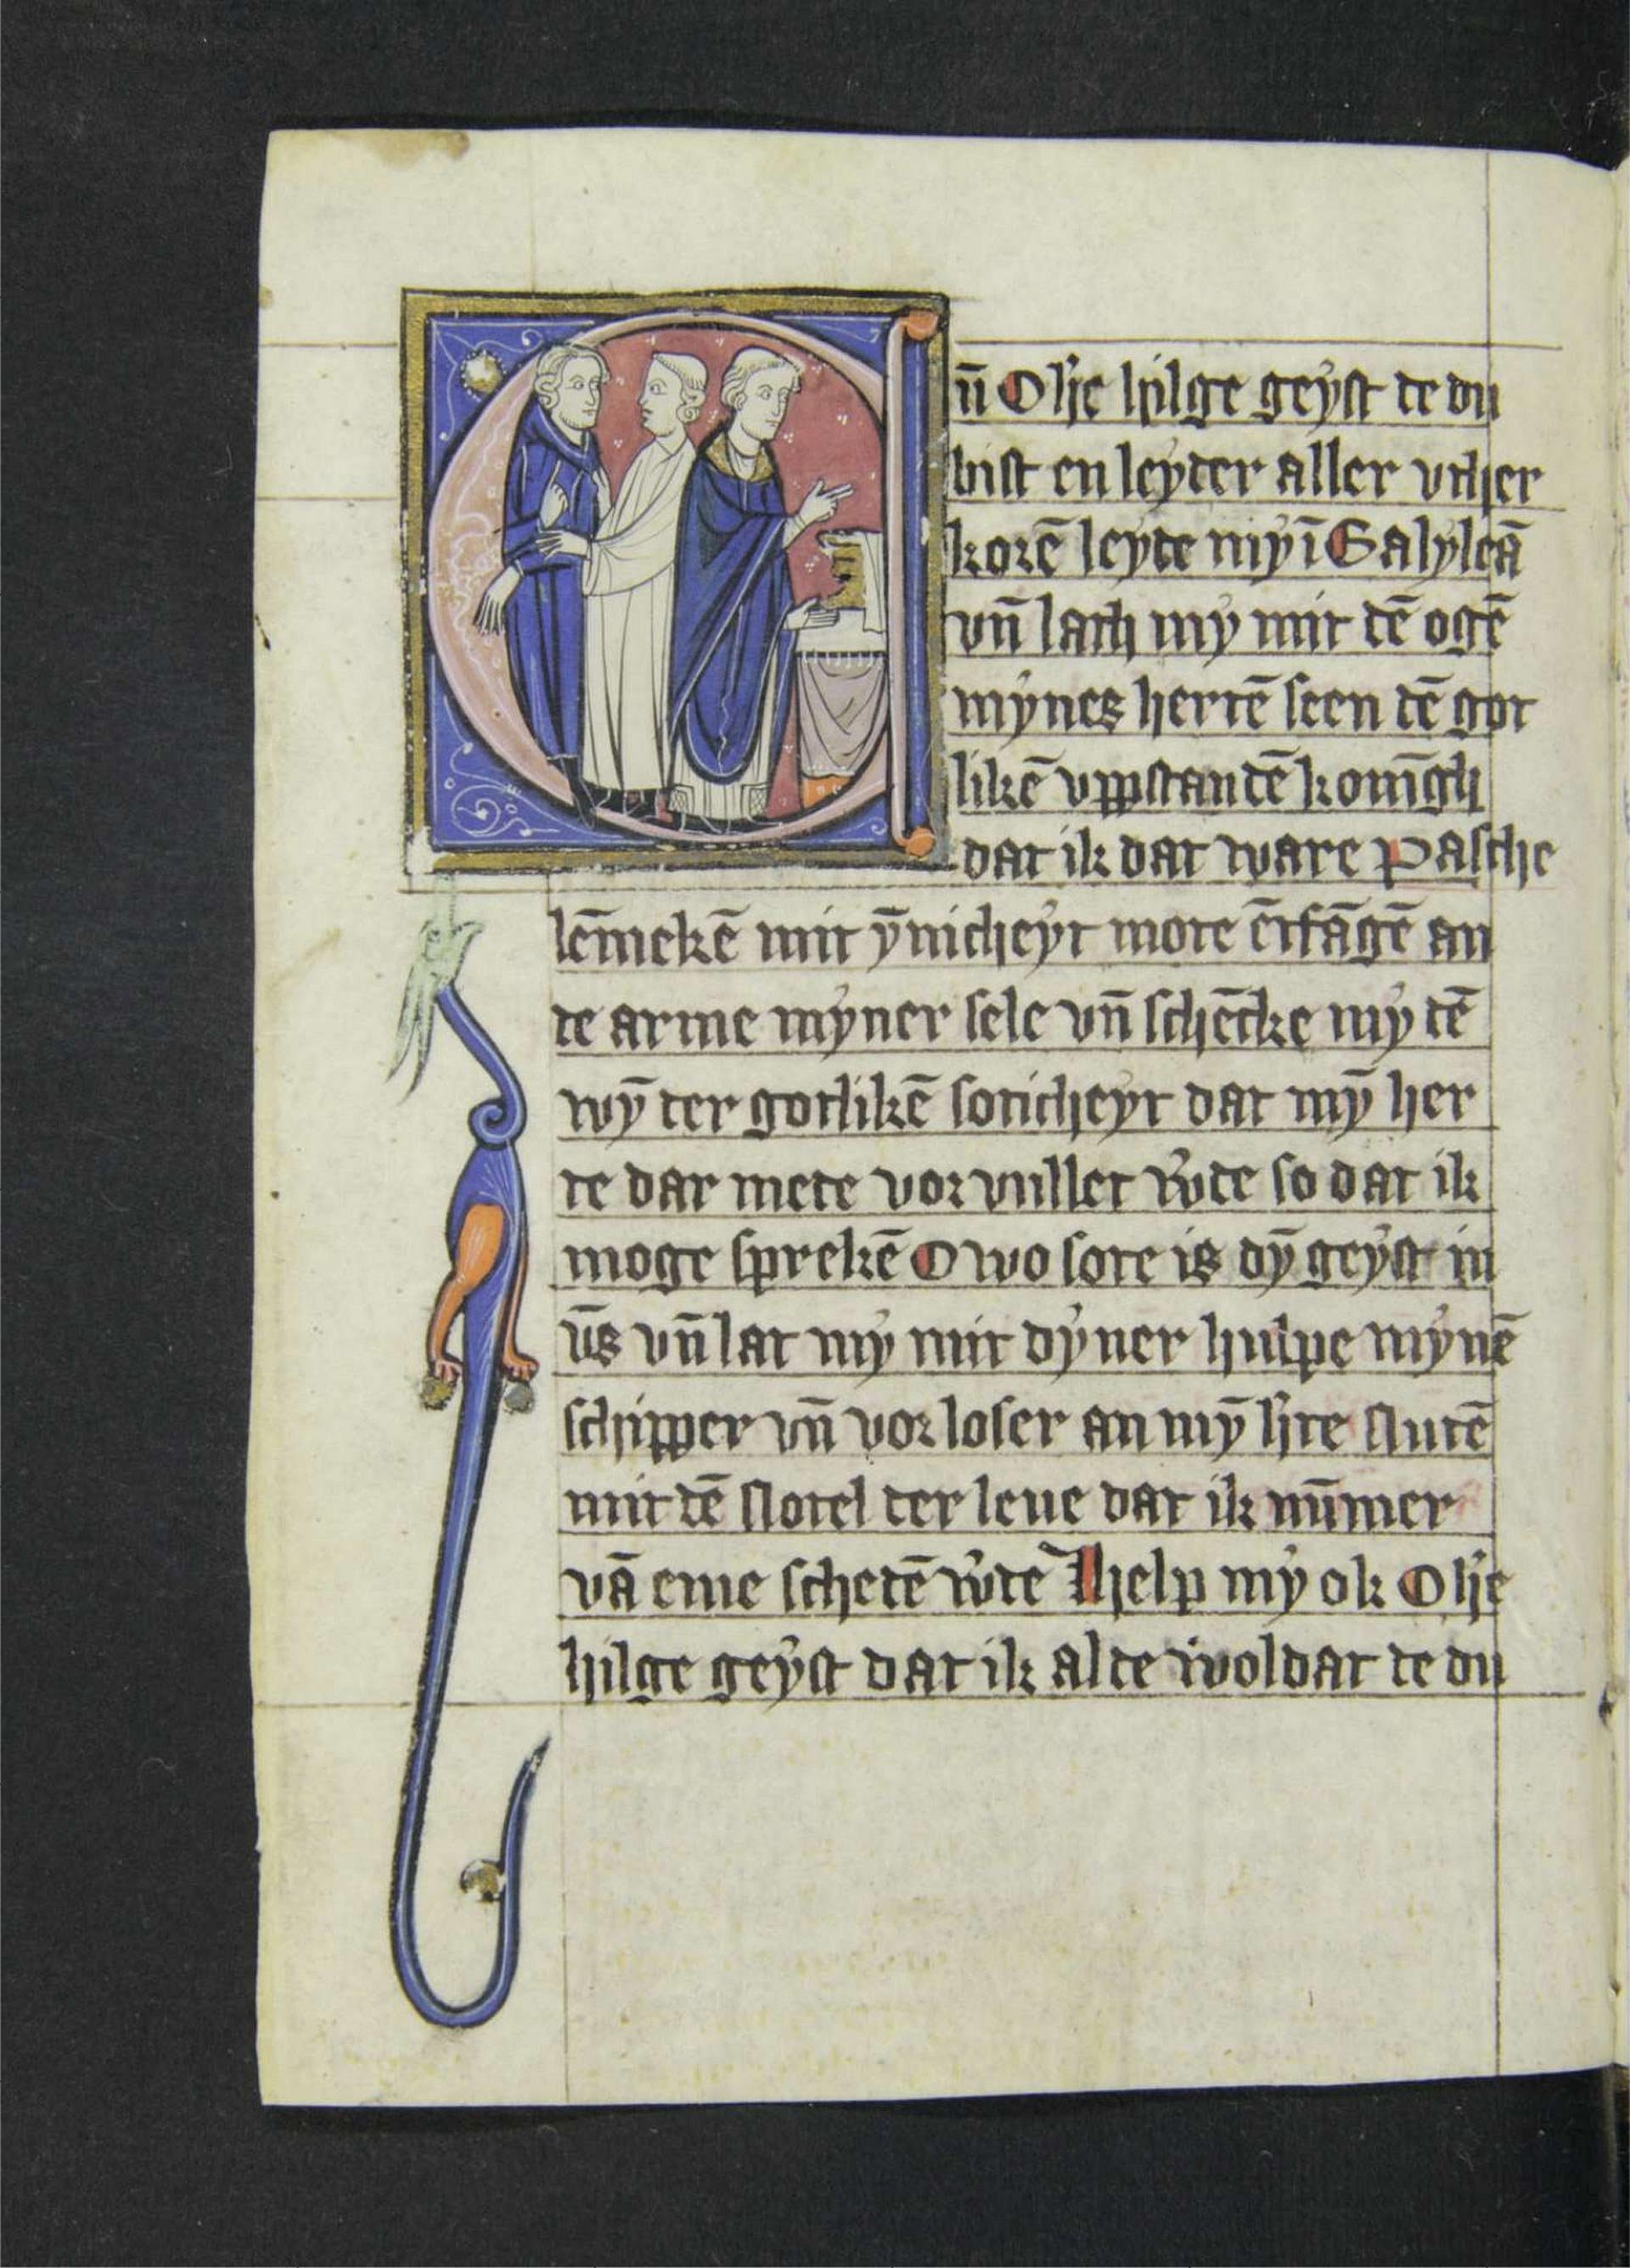 ūn O h̓e hilge geẏst de du
bist en leẏder aller vther
korē leẏde mẏ ī Galẏleā
vn̄ lath mẏ mit dē ogē
mẏnes hertē seen dē got
likē vppstandē konīgh
dat ik dat ware Pasche
lēmekē mit ẏ̄nicheẏt mote ētfāgē an
de arme mẏner sele vn̄ schēcke mẏ dē
wẏ̄ der gotlikē soticheẏt dat mẏ̄ her
te dar mete vor vullet w̓de so dat ik
moge sprekē O wo sote is dẏ̄ geẏst in
v̄s vn̄ lat mẏ mit dẏner hulpe mẏnē
schipper vn̄ vor loser an mẏ̄ h̓te slutē
mit dē slotel der leue dat ik nūmer
vā eme schedē w̓de Help mẏ ok O h̓e
hilge geẏst dat ik al de woldat de du